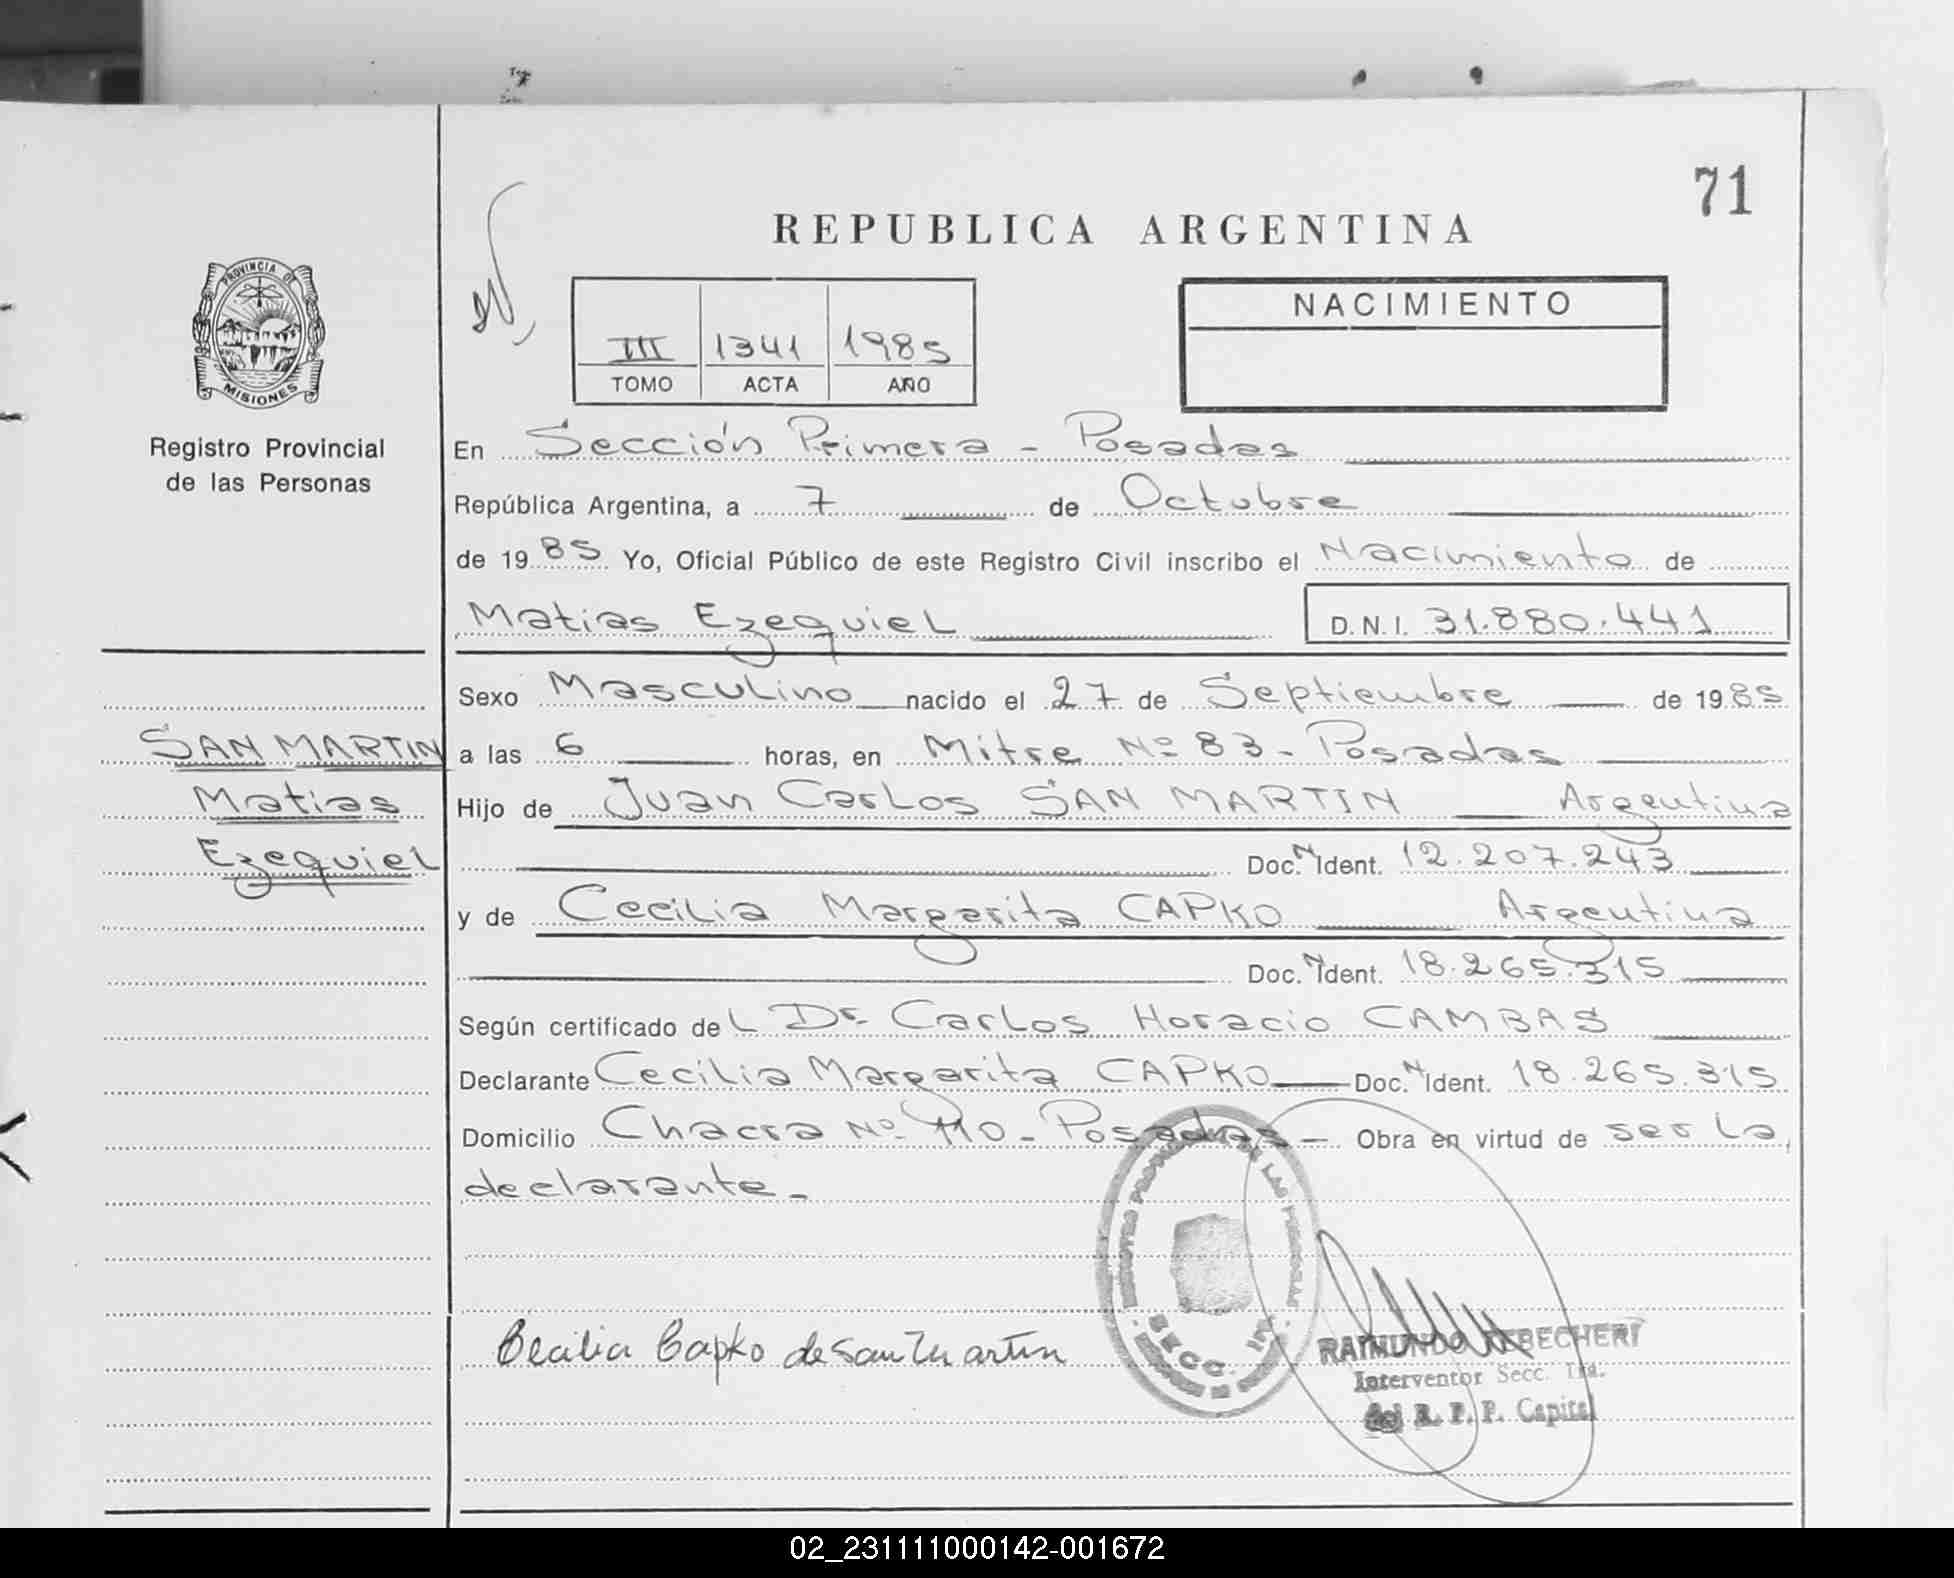 71
REPUBLICA ARGENTINA
PROVINCIA DE
MISIONES
Registro Provincial
de las Personas
III 1341 1985
TOMO ACTA AÑO
NACIMIENTO
En Sección Primera - Posadas
República Argentina, a 7 de Octubre
de 1985 Yo, Oficial Público de este Registro Civil inscribo el Nacimiento de
Matias Ezequiel D.N.I. 31.880.441
Sexo Masculino nacido el 27 de Septiembre de 1985
SAN MARTIN
Matias
Ezequiel
a las 6 horas, en Mitre Nº 83 - Posadas
Hijo de Juan Carlos SAN MARTIN Argentina
Doc. N Ident. 12.207.243
y de Cecilia Margarita CAPKO Argentina
Doc. N Ident. 18.265.315
Según certificado del Dr. Carlos Horacio CAMBAS
Declarante Cecilia Margarita CAPKO Doc. N Ident. 18.265.315
Domicilio Chacra Nº 110 - Posadas - Obra en virtud de ser la
declarante -
Cecilia Capko de San Martin
SECC.
RAIMUNDO
Interventor Secc. 1ra.
del R. P. P. Capital
02_231111000142-001672